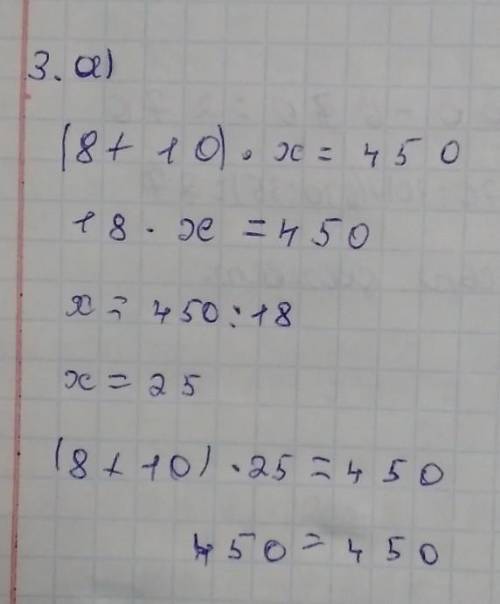 3. а)
(8 + 10) · x = 450
18 · x = 450
x = 450 : 18
x = 25
(8 + 10) · 25 = 450
450 = 450